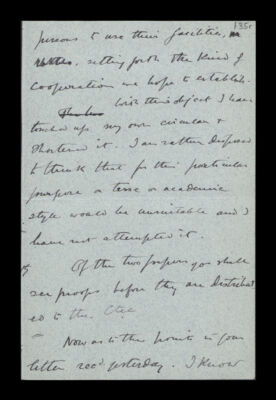 135
persons to use their facilities,
setting forth the kind of
cooperation we hope to establish.
With this object I have
touched up my own circular &
shortened it. I am rather disposed
to think that for this particular
purpose a terse or academic
style would be unsuitable and I
have not attempted it.
Of the two papers you shall
see proofs before they are distribut
ed to the Ctee
Now as to the points in your
letter recd yesterday. I know